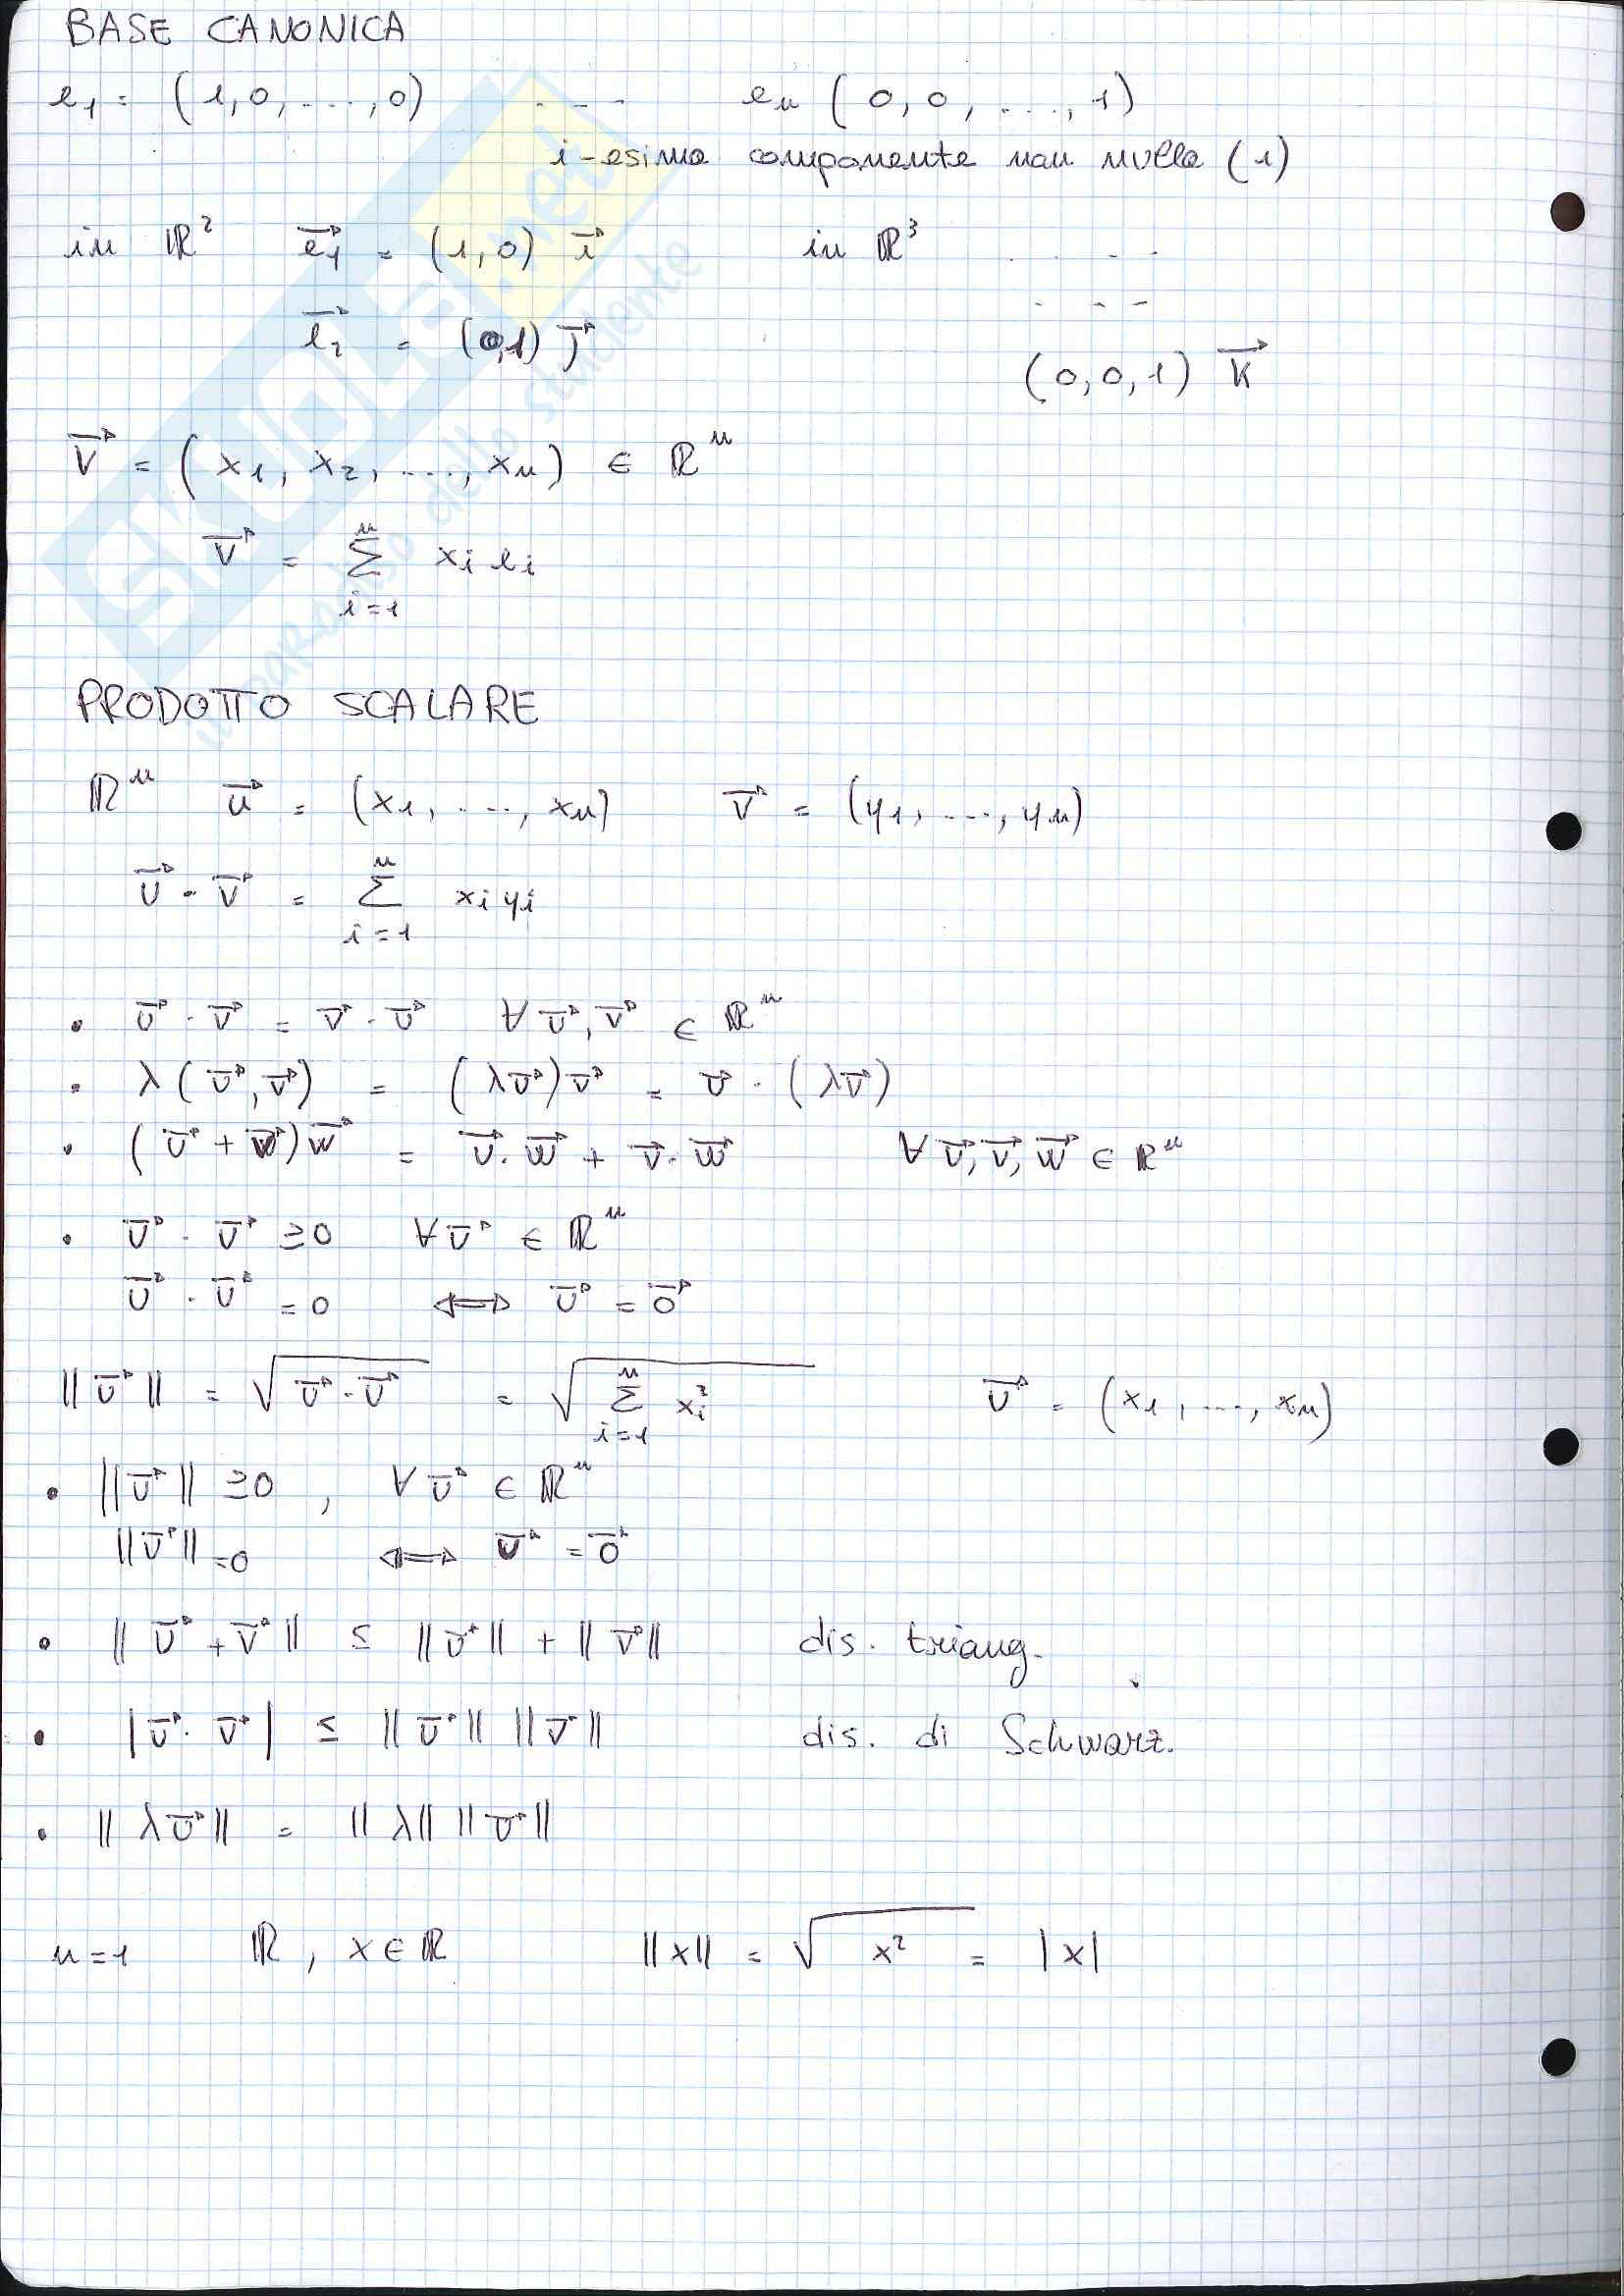 BASE CANONICA
e₁ = (1,0,....,0) --- eₙ (0,0,....,1)
i-esima componente non nulla (1)
in ℝ² e⃗₁ = (1,0) i⃗ in ℝ³ ....
e⃗₂ = (0,1) j⃗ ---
(0,0,1) k⃗
v⃗ = (x₁, x₂, ...., xₙ) ∈ ℝⁿ
v⃗ = Σᵢ₌₁ⁿ xᵢ eᵢ
PRODOTTO SCALARE
ℝⁿ u⃗ = (x₁, ...., xₙ) v⃗ = (y₁, ...., yₙ)
u⃗ · v⃗ = Σᵢ₌₁ⁿ xᵢ yᵢ
• u⃗ · v⃗ = v⃗ · u⃗ ∀ u⃗, v⃗ ∈ ℝⁿ
• λ(u⃗, v⃗) = (λu⃗)v⃗ = u⃗ · (λv⃗)
• (u⃗ + v⃗)w⃗ = u⃗ · w⃗ + v⃗ · w⃗ ∀ u⃗, v⃗, w⃗ ∈ ℝⁿ
• u⃗ · u⃗ ≥ 0 ∀ u⃗ ∈ ℝⁿ
u⃗ · u⃗ = 0 ⟺ u⃗ = 0⃗
‖u⃗‖ = √(u⃗ · u⃗) = √(Σᵢ₌₁ⁿ xᵢ²) u⃗ = (x₁, ...., xₙ)
• ‖u⃗‖ ≥ 0, ∀ u⃗ ∈ ℝⁿ
‖u⃗‖ = 0 ⟺ u⃗ = 0⃗
• ‖u⃗ + v⃗‖ ≤ ‖u⃗‖ + ‖v⃗‖ dis. triang.
• |u⃗ · v⃗| ≤ ‖u⃗‖ ‖v⃗‖ dis. di Schwarz.
• ‖λu⃗‖ = ‖λ‖ ‖u⃗‖
n = 1 ℝ, x ∈ ℝ ‖x‖ = √x² = |x|
SKUOLA.net
il paradiso dello studente